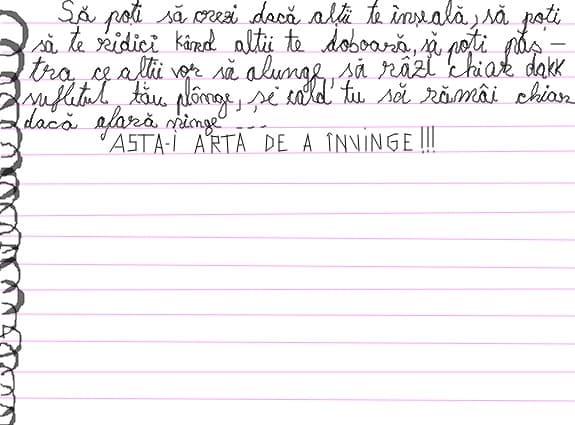 Să poți să crezi dacă alții te înșeală, să poți
să te ridici kând alții te doboară, să poți păs -
tra ce alții vor să alunge, să râzi chiar dakk
sufletul tău plânge, și cald tu să rămâi chiar
dacă afară ninge ....
ASTA-I ARTA DE A ÎNVINGE!!!